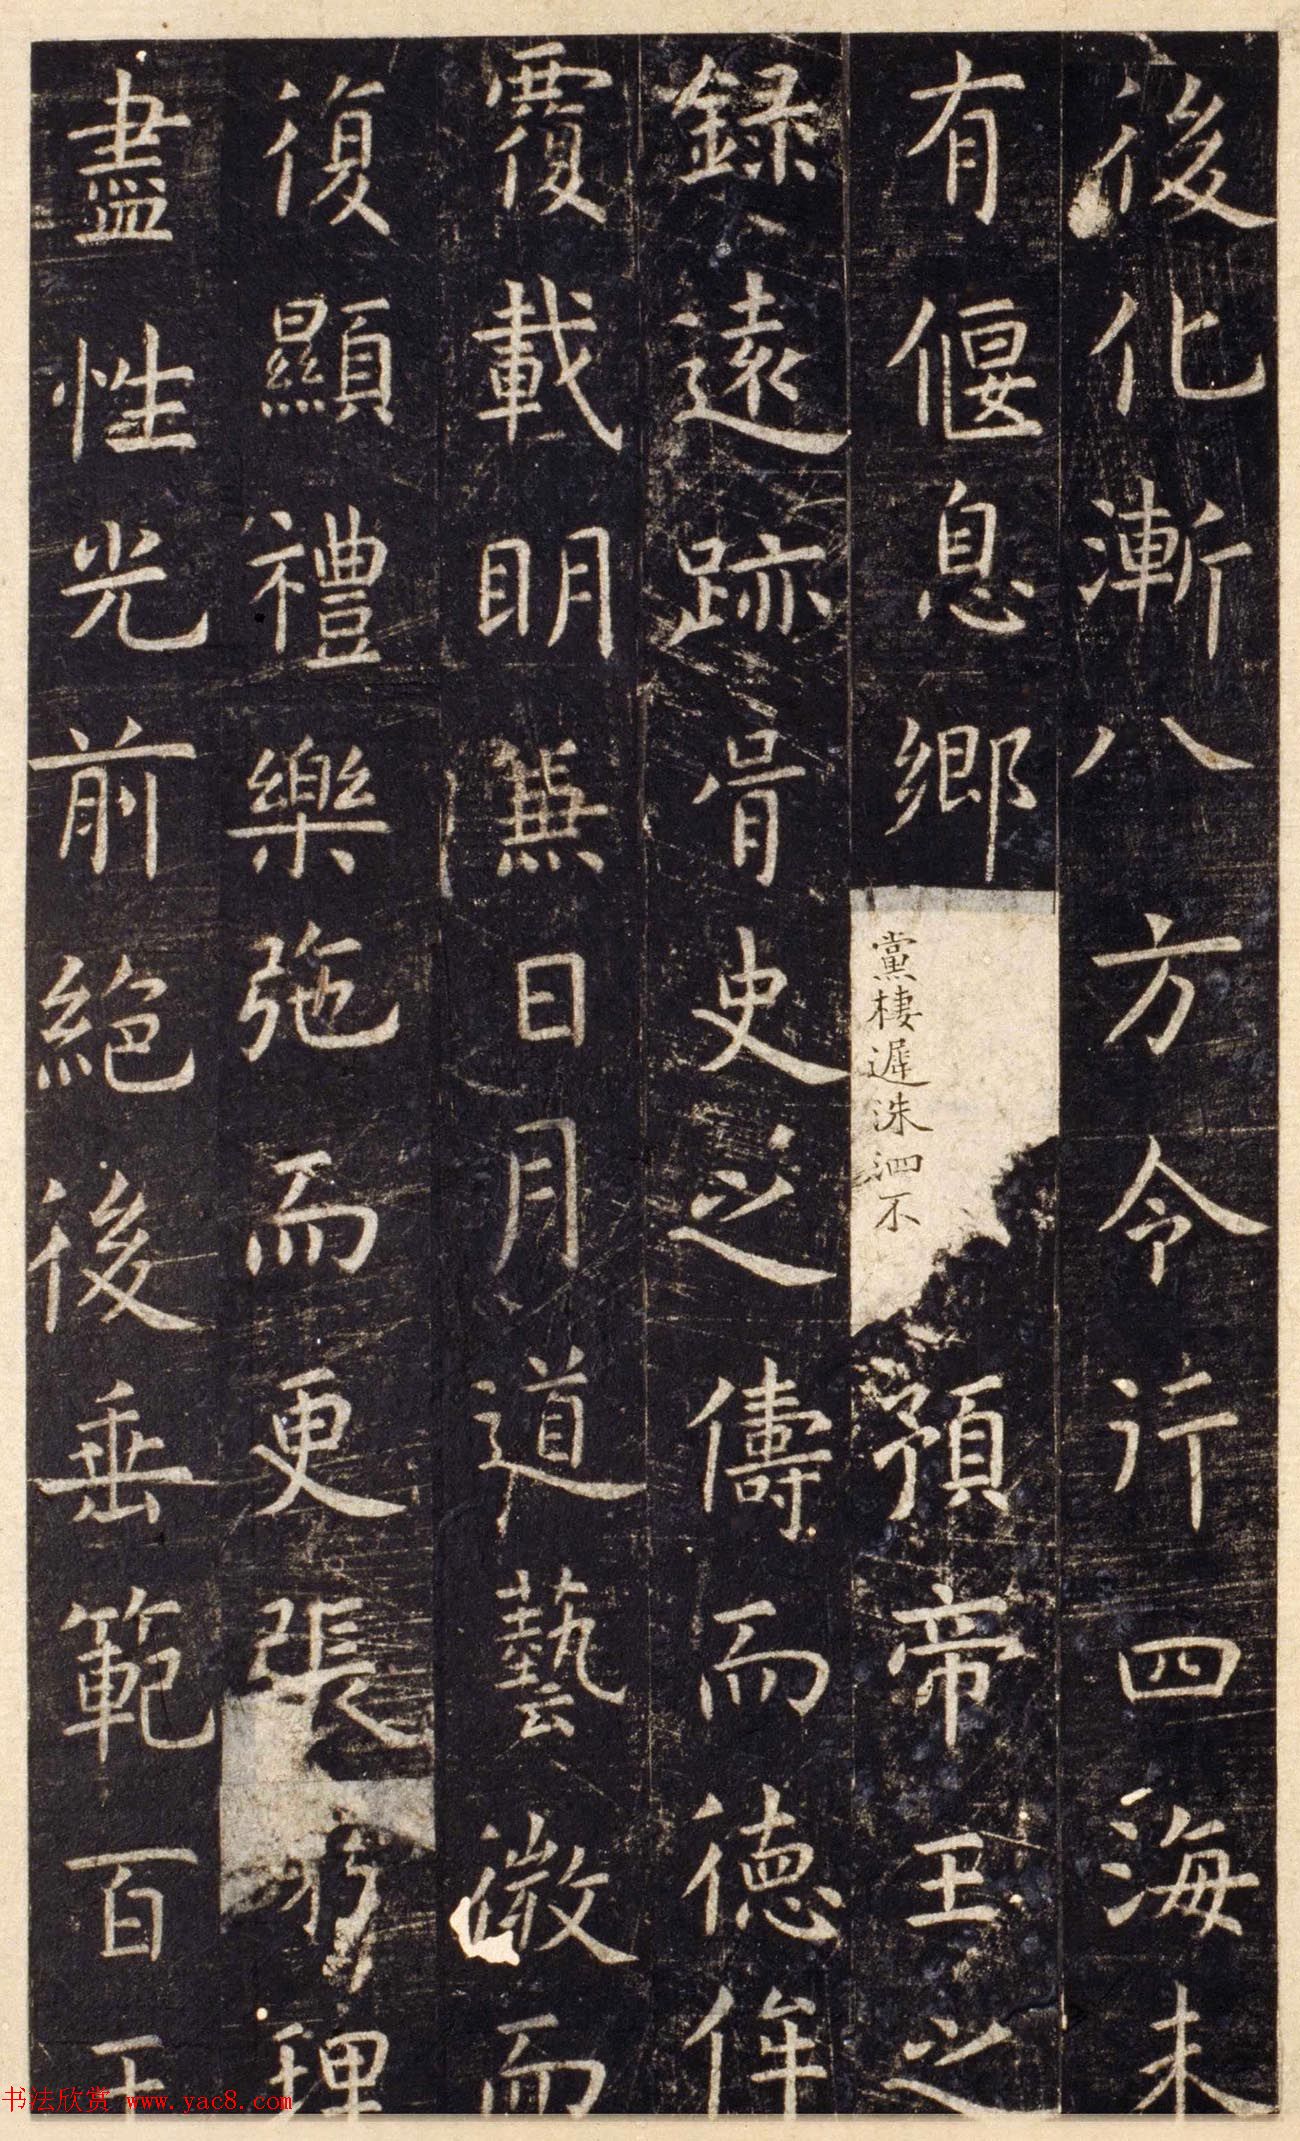 後化漸八方令行四海未
有偃息鄉
黨棲遲洙泗不
預帝王之
録遠跡胥史之儔而德侔
覆載明兼日月道藝微而
復顯禮樂弛而更張窮理
盡性光前絕後垂範百王
书法欣赏 www.yac8.com